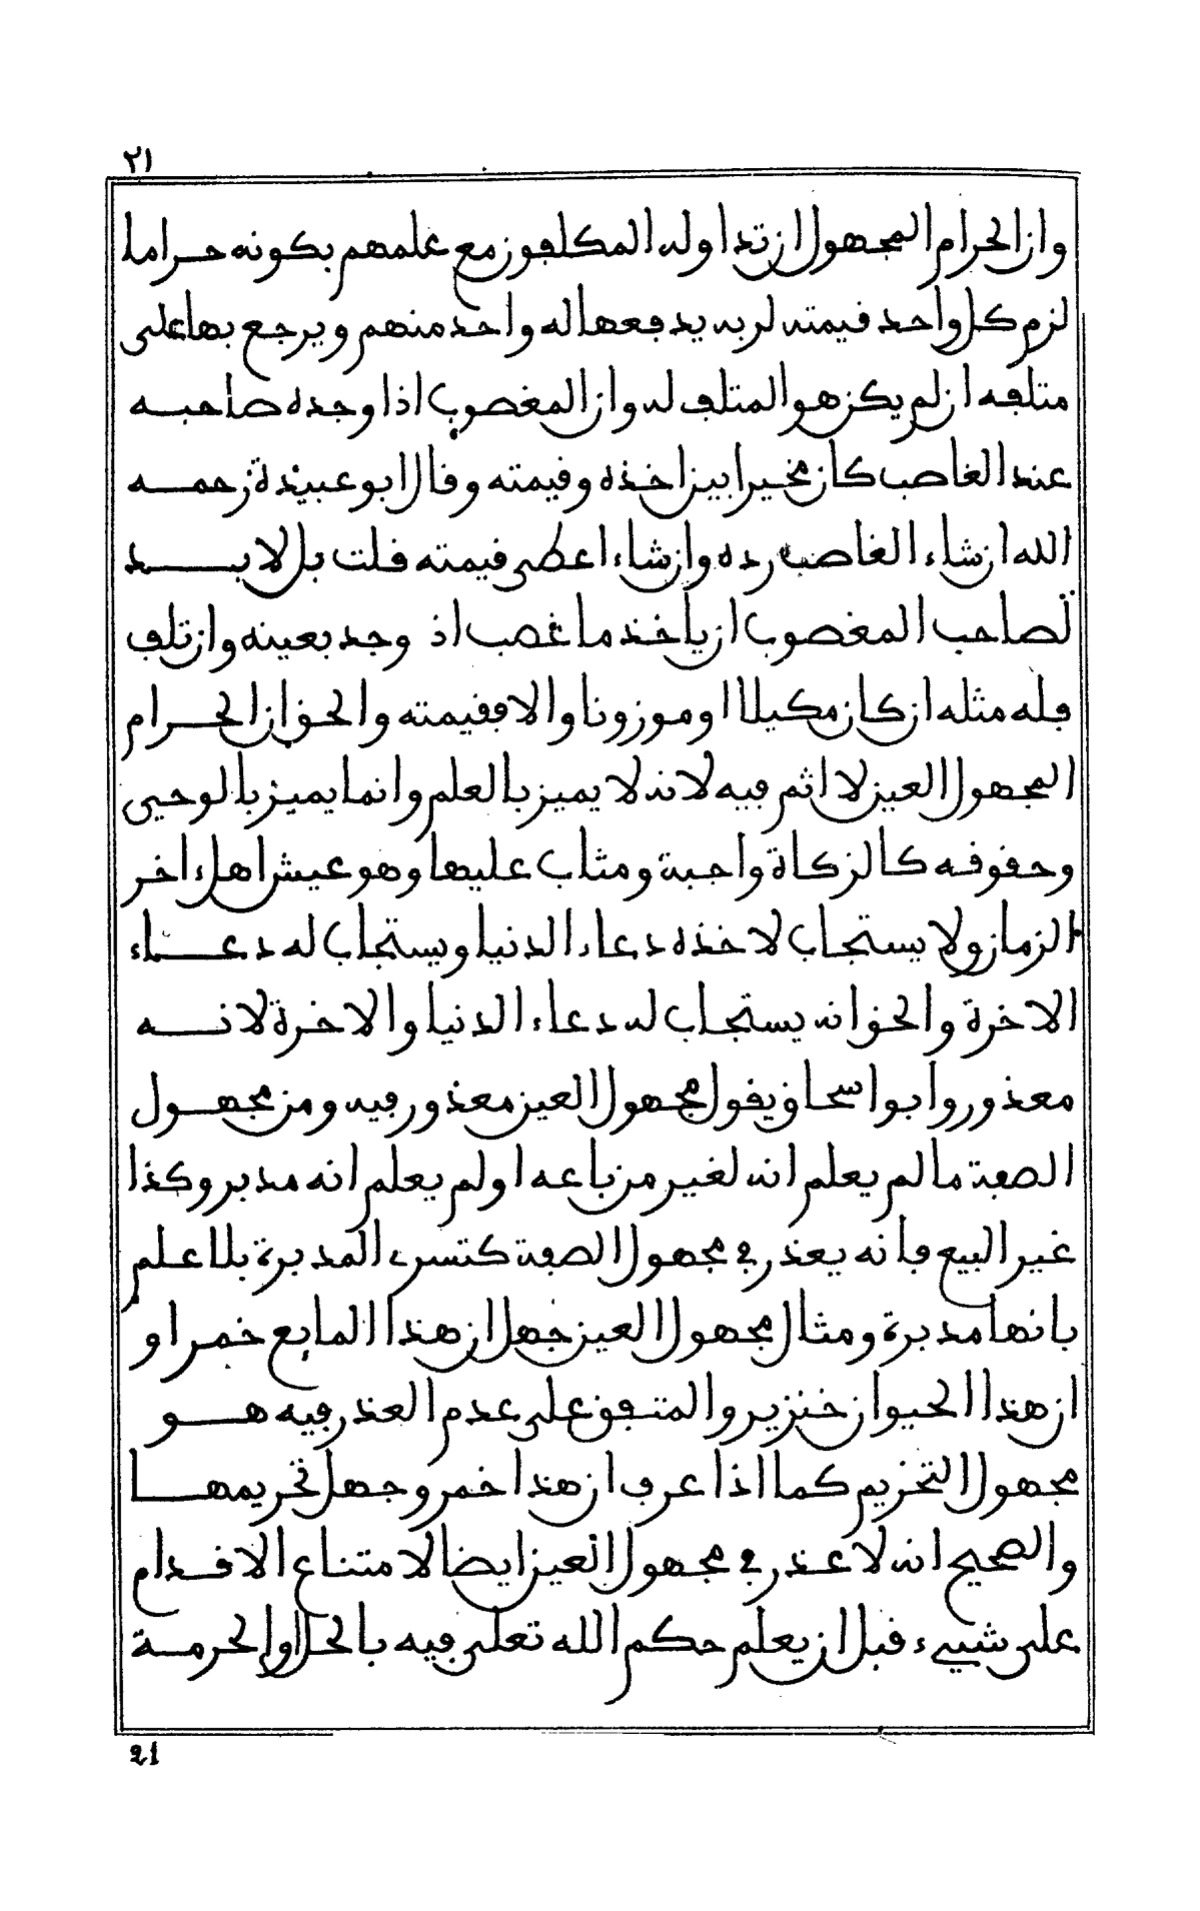 ٢١
وان الحرام المجهول ان تداوله المكلفون مع علمهم بكونه حراما
لزم كل واحد قيمته لربه يدفعها له واحد منهم ويرجع بها على
متلفه ان لم يكن هو المتلف له وان المغصوب اذا وجده صاحبه
عند الغاصب كان مخيرا بين اخذه وقيمته وقال ابو عبيدة رحمه
الله ان شاء الغاصب رده وان شاء اعطى قيمته قلت بل لا بد
لصاحب المغصوب ان ياخذ ما غصب اذ وجد بعينه وان تلف
فله مثله ان كان مكيلا او موزونا والا فقيمته والحق ان الحرام
المجهول العين لا اثم فيه لانه لا يميز بالعلم وانما يميز بالوحي
وحقوقه كالزكاة واجبة ومثاب عليها وهو عيش اهل اخر
الزمان ولا يستجاب لاخذه دعاء الدنيا ويستجاب له دعاء
الاخرة والحق انه يستجاب له دعاء الدنيا والاخرة لانه
معذور وابو اسحاق يقول مجهول العين معذور فيه ومن مجهول
الصفة ما لم يعلم انه لغير من باعه او لم يعلم انه مدبر وكذا
غير البيع فانه يعذر في مجهول الصفة كتسري المدبرة بلا علم
بانها مدبرة ومثال مجهول العين جهل ان هذا المايع خمر او
ان هذا الحيوان خنزير والمتفق على عدم العذر فيه هو
مجهول التحريم كما اذا عرف ان هذا خمر وجهل تحريمها
والصحيح انه لا عذر في مجهول العين ايضا لامتناع الاقدام
على شيء قبل ان يعلم حكم الله تعلى فيه بالحل او الحرمة
21